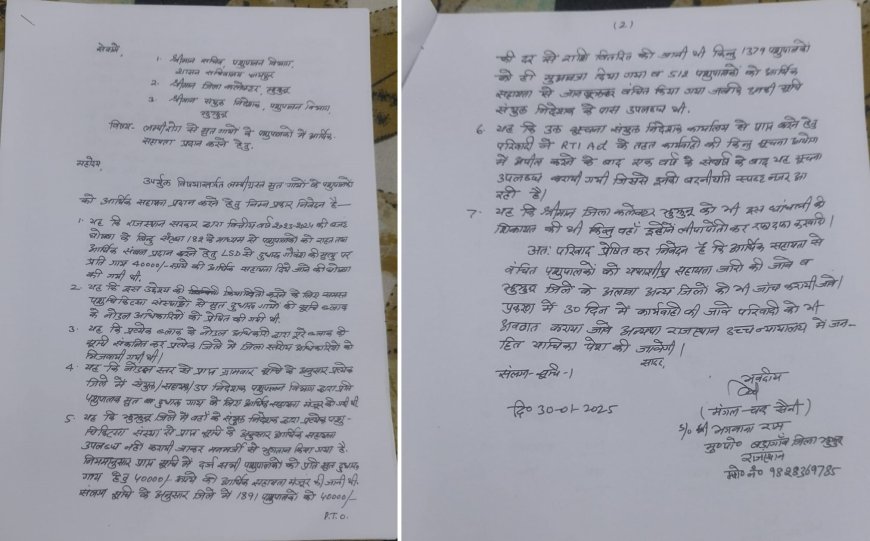 सेवामें,
1. श्रीमान सचिव, पशुपालन विभाग,
शासन सचिवालय जयपुर
2. श्रीमान जिला कलेक्टर, झुन्झुनू
3. श्रीमान संयुक्त निदेशक, पशुपालन विभाग,
झुन्झुनू
विषय- लम्पीरोग से मृत गायों के पशुपालकों में आर्थिक
सहायता प्रदान करने हेतु.
महोदय,
उपर्युक्त विषयान्तर्गत लम्पीग्रस्त मृत गायों के पशुपालकों
को आर्थिक सहायता प्रदान करने हेतु निम्न प्रकार निवेदन है—
1. यह कि राजस्थान सरकार द्वारा वित्तीय वर्ष 2023-2024 की बजट
घोषणा के बिन्दु संख्या 182 के माध्यम से पशुपालकों को राहत तथा
आर्थिक संबल प्रदान करने हेतु LSD से दुधारू गौवंश की मृत्यु पर
प्रति गाय 40000/- रूपये की आर्थिक सहायता दिये जाने की घोषणा
की गयी थी.
2. यह कि इस उद्देश्य की क्रियान्विती करने के लिए समस्त
पशुचिकित्सा संस्थाओं से मृत दुधारू गायों की सूचि ब्लाक
के नोडल अधिकारियों को प्रेषित की गयी थी.
3. यह कि प्रत्येक ब्लाक के नोडल अधिकारी द्वारा पूरे ब्लाक की
सूची संकलित कर प्रत्येक जिले में जिला स्तरीय अधिकारियों को
भिजवायी गयी थी।
4. यह कि नोडल स्तर से प्राप्त ग्रामवार सूचि के अनुसार प्रत्येक
जिले में संयुक्त/सहायक/उप निदेशक पशुपालन विभाग द्वारा प्रति
पशुपालक मृत दुधारू गाय के लिए आर्थिक सहायता मंजूर की गयी थी
5. यह कि झुन्झुनू जिले में वहाँ के संयुक्त निदेशक द्वारा प्रत्येक पशु-
चिकित्सा संस्था से प्राप्त सूचि के अनुसार आर्थिक सहायता
उपलब्ध नहीं करायी जाकर मनमर्जी से भुगतान किया गया है.
नियमानुसार प्राप्त सूचि में दर्ज सभी पशुपालकों को प्रति मृत दुधारू
गाय हेतु 40000/- रूपये की आर्थिक सहायता मंजूर की जानी थी.
संलग्न सूचि के अनुसार जिले में 1891 पशुपालकों को 40000/-
P.T.O.
(2)
की दर से राशि वितरित की जानी थी किन्तु 1379 पशुपालकों
को ही मुआवजा दिया गया व 512 पशुपालकों को आर्थिक
सहायता से जानबूझकर वंचित किया गया जबकि सूचि
संयुक्त निदेशक के पास उपलब्ध थी.
6. यह कि उक्त सूचना संयुक्त निदेशक कार्यालय से प्राप्त करने हेतु
परिवादी ने RTI Act के तहत कार्यवाही की किन्तु सूचना आयोग
में अपील करने के बाद एक वर्ष के संघर्ष के बाद यह सूचना
उपलब्ध करायी गयी जिससे इनकी बदनीयति स्पष्ट नजर आ
रही है।
7. यह कि श्रीमान जिला कलेक्टर झुन्झुनू को भी इस धांधली की
शिकायत की थी किन्तु वहाँ इन्होंने लीपापोती कर रफा दफा करवादि।
अतः परिवाद प्रेषित कर निवेदन है कि आर्थिक सहायता से
वंचित पशुपालकों को यथाशीघ्र सहायता जारी की जावे व
झुन्झुनू जिले के अलावा अन्य जिलों की भी जांच करायी जावे।
प्रकरण में 30 दिन में कार्यवाही की जावे परिवादी को भी
अवगत कराया जावे अन्यथा राजस्थान उच्च न्यायालय में जन-
हित याचिका पेश की जायेगी।
सादर,
संलग्न- सूचि-।
भवदीय
दि० 30-01-2025
(मंगल-चन्द सैनी)
S/o श्री राम
मु०पो० बड़ागाँव जिला झुन्झुनू
राजस्थान
मो० नं० 9828369785